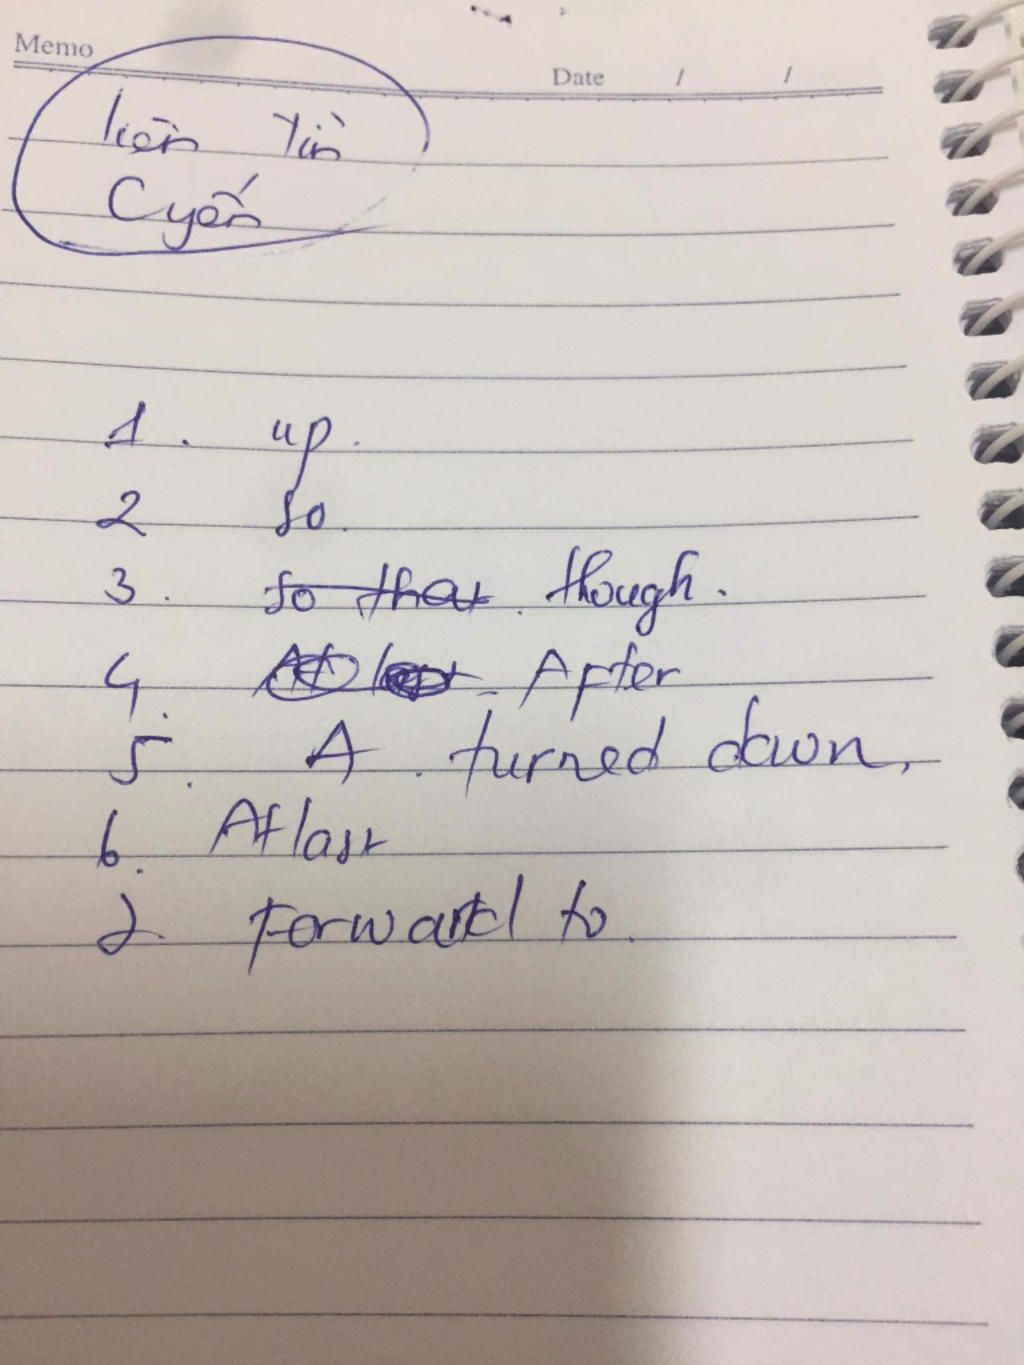 Memo
Date / /
kiên Yin
Cyến
1. up.
2 so.
3. so that. though.
4. After
5. A. turned down,
6. At last
7. Forward to.